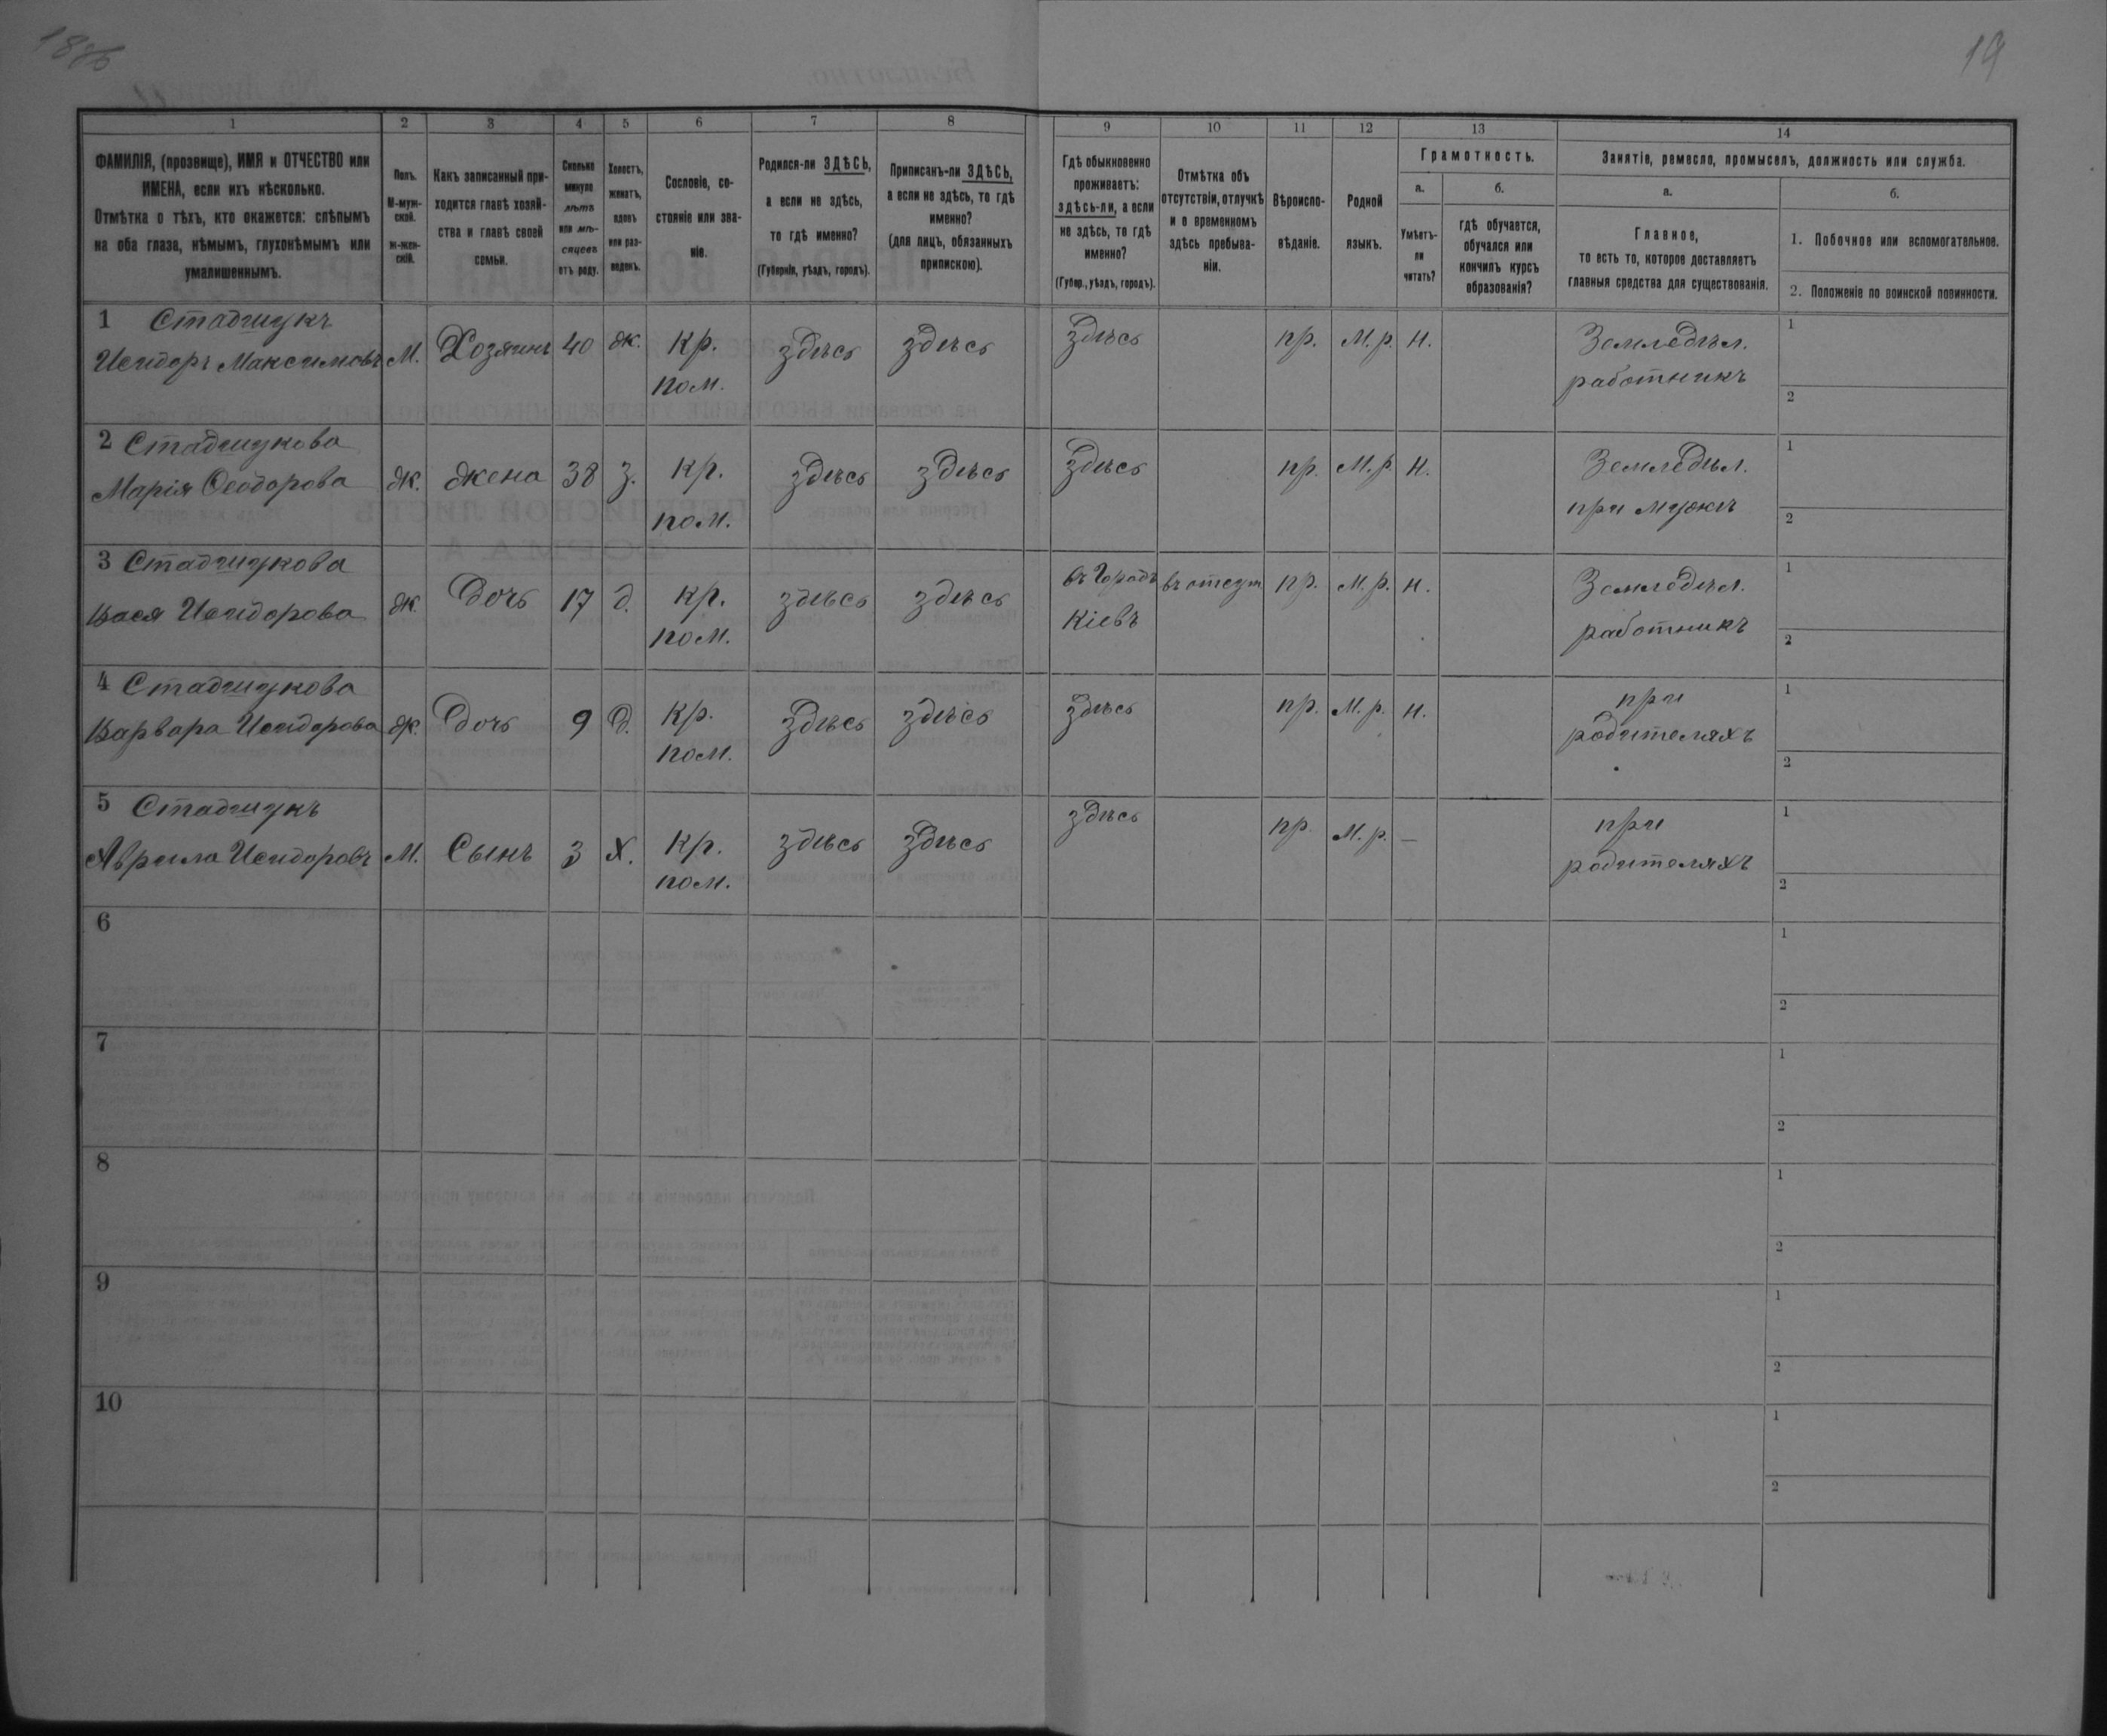 1886
19
1
2
3
4
5
6
7
8
9
10
11
12
13
14
ФАМИЛІЯ, (прозвище), ИМЯ и ОТЧЕСТВО или
ИМЕНА, если ихъ нѣсколько.
Отмѣтка о тѣхъ, кто окажется: слѣпымъ
на оба глаза, нѣмымъ, глухонѣмымъ или
умалишеннымъ.
Полъ.
М-муж-
ской.
ж-жен-
скій.
Какъ записанный при-
ходится главѣ хозяй-
ства и главѣ своей
семьи.
Сколько
минуло
лѣтъ
или мѣ-
сяцевъ
отъ роду.
Холостъ,
женатъ,
вдовъ
или раз-
веденъ.
Сословіе, со-
стояніе или зва-
ніе.
Родился-ли ЗДѢСЬ,
а если не здѣсь,
то гдѣ именно?
(Губернія, уѣздъ, городъ).
Приписанъ-ли ЗДѢСЬ,
а если не здѣсь, то гдѣ
именно?
(для лицъ, обязанныхъ
припискою).
Гдѣ обыкновенно
проживаетъ:
здѣсь-ли, а если
не здѣсь, то гдѣ
именно?
(Губер., уѣздъ, городъ).
Отмѣтка объ
отсутствіи, отлучкѣ
и о временномъ
здѣсь пребыва-
ніи.
Вѣроиспо-
вѣданіе.
Родной
языкъ.
Грамотность.
а.
Умѣетъ-
ли
читать?
б.
гдѣ обучается,
обучался или
кончилъ курсъ
образованія?
Занятіе, ремесло, промыселъ, должность или служба.
а.
Главное,
то есть то, которое доставляетъ
главныя средства для существованія.
б.
1. Побочное или вспомогательное.
2. Положеніе по воинской повинности.
1 Стадчукъ
Исидоръ Максимовъ М. Хозяинъ 40 ж. Кр. здѣсь здѣсь здѣсь пр. М. р. н. Земледѣл. 1
пом. работникъ 2
2 Стадчукова
Марія Ѳеодорова ж. жена 38 з. Кр. здѣсь здѣсь здѣсь пр. М. р. н. Земледѣл. 1
пом. при мужѣ 2
3 Стадчукова
Вася Исидорова ж. Дочь 17 д. Кр. здѣсь здѣсь въ Городѣ въ отсут. пр. М. р. н. Земледѣл. 1
пом. Кіевъ работникъ 2
4 Стадчукова
Варвара Исидорова ж. Дочь 9 д. Кр. здѣсь здѣсь здѣсь пр. М. р. н. при 1
пом. родителяхъ 2
5 Стадчукъ
Аврила Исидоровъ М. Сынъ 3 х. Кр. здѣсь здѣсь здѣсь пр. М. р. — при 1
пом. родителяхъ 2
6 1
2
7 1
2
8 1
2
9 1
2
10 1
2